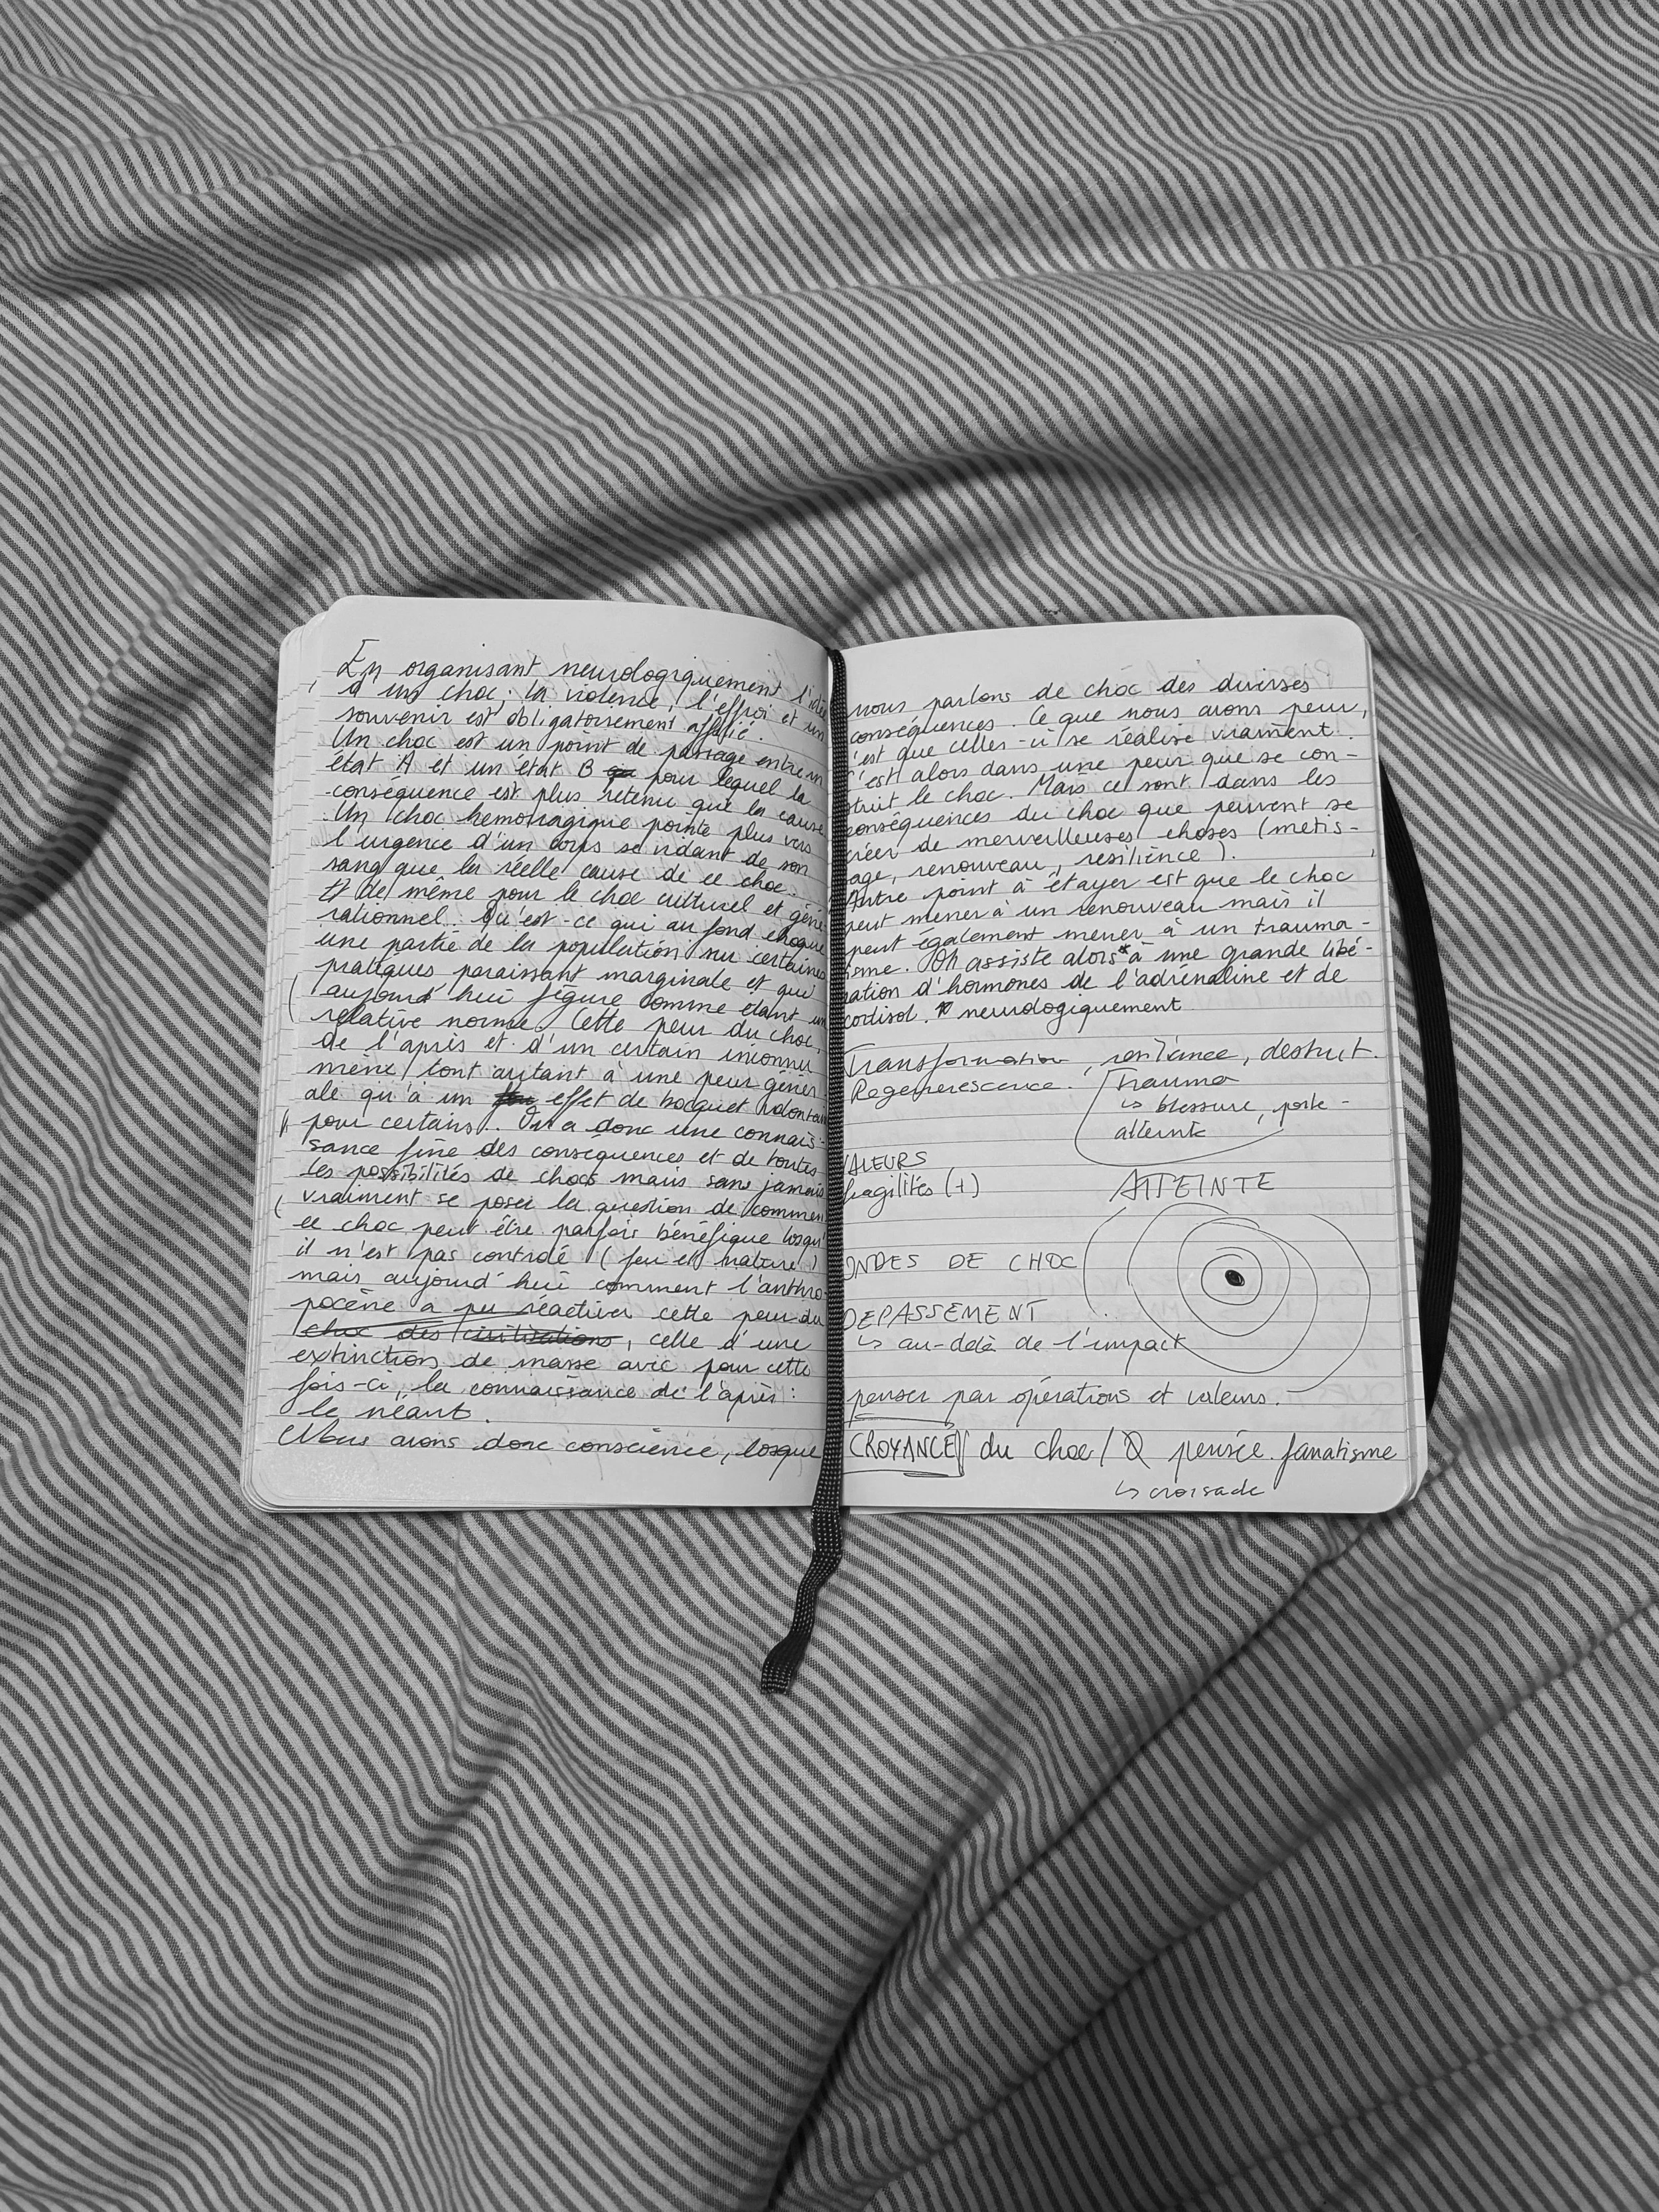 En organisant neurologiquement l'idée
d'un choc; la violence, l'effroi et un
souvenir est obligatoirement affilié.
Un choc est un point de passage entre un
état A et un état B pour lequel la
conséquence est plus retenu que la cause
Un choc hémorragique pointe plus vers
l'urgence d'un corps se vidant de son
sang que la réelle cause de ce choc.
Il de même pour le choc culturel et géné-
rationnel. Qu'est-ce qui au fond choque
une partie de la population sur certaines
pratiques paraissant marginale et qui
aujourd'hui figure comme étant un
relative norme. Cette peur du choc,
de l'après et d'un certain inconnu
mène tout autant à une peur génér
ale qu'à un effet de hocquet volontaire
pour certains. On a donc une connais-
sance fine des conséquences et de toutes
les possibilités de chocs mais sans jamais
vraiment se poser la question de commen
ce choc peut être parfois bénéfique losqu'
il n'est pas contrôlé (feu et nature)
mais aujourd'hui comment l'anthro-
pocène a pu réactiver cette peur du
choc des civilisations, celle d'une
extinctions de masse avec pour cette
fois-ci, la connaissance de l'après:
le néant.
Nous avons donc conscience, losque
nous parlons de choc des diverses
conséquences. Ce que nous avons peur,
c'est que celles-ci se réalise vraiment.
C'est alors dans une peur que se con-
struit le choc. Mais ce sont dans les
conséquences du choc que peuvent se
créer de merveilleuses choses (métis-
age, renouveau, resilience).
Autre point à étayer est que le choc
peut mener à un renouveau mais il
peut également mener à un trauma-
isme. On assiste alors* à une grande libé-
ration d'hormones de l'adrénaline et de
cortisol. * neurologiquement
Transformation, resiliance, destruct.
Regenerescence. Trauma
↳ blessure, perte-
atteinte
VALEURS
fragilités (+)
ATTEINTE
ONDES DE CHOC
DEPASSEMENT
↳ au-delà de l'impact
penser par opérations et valeurs.
CROYANCE du choc / pensée fanatisme
↳ croisade